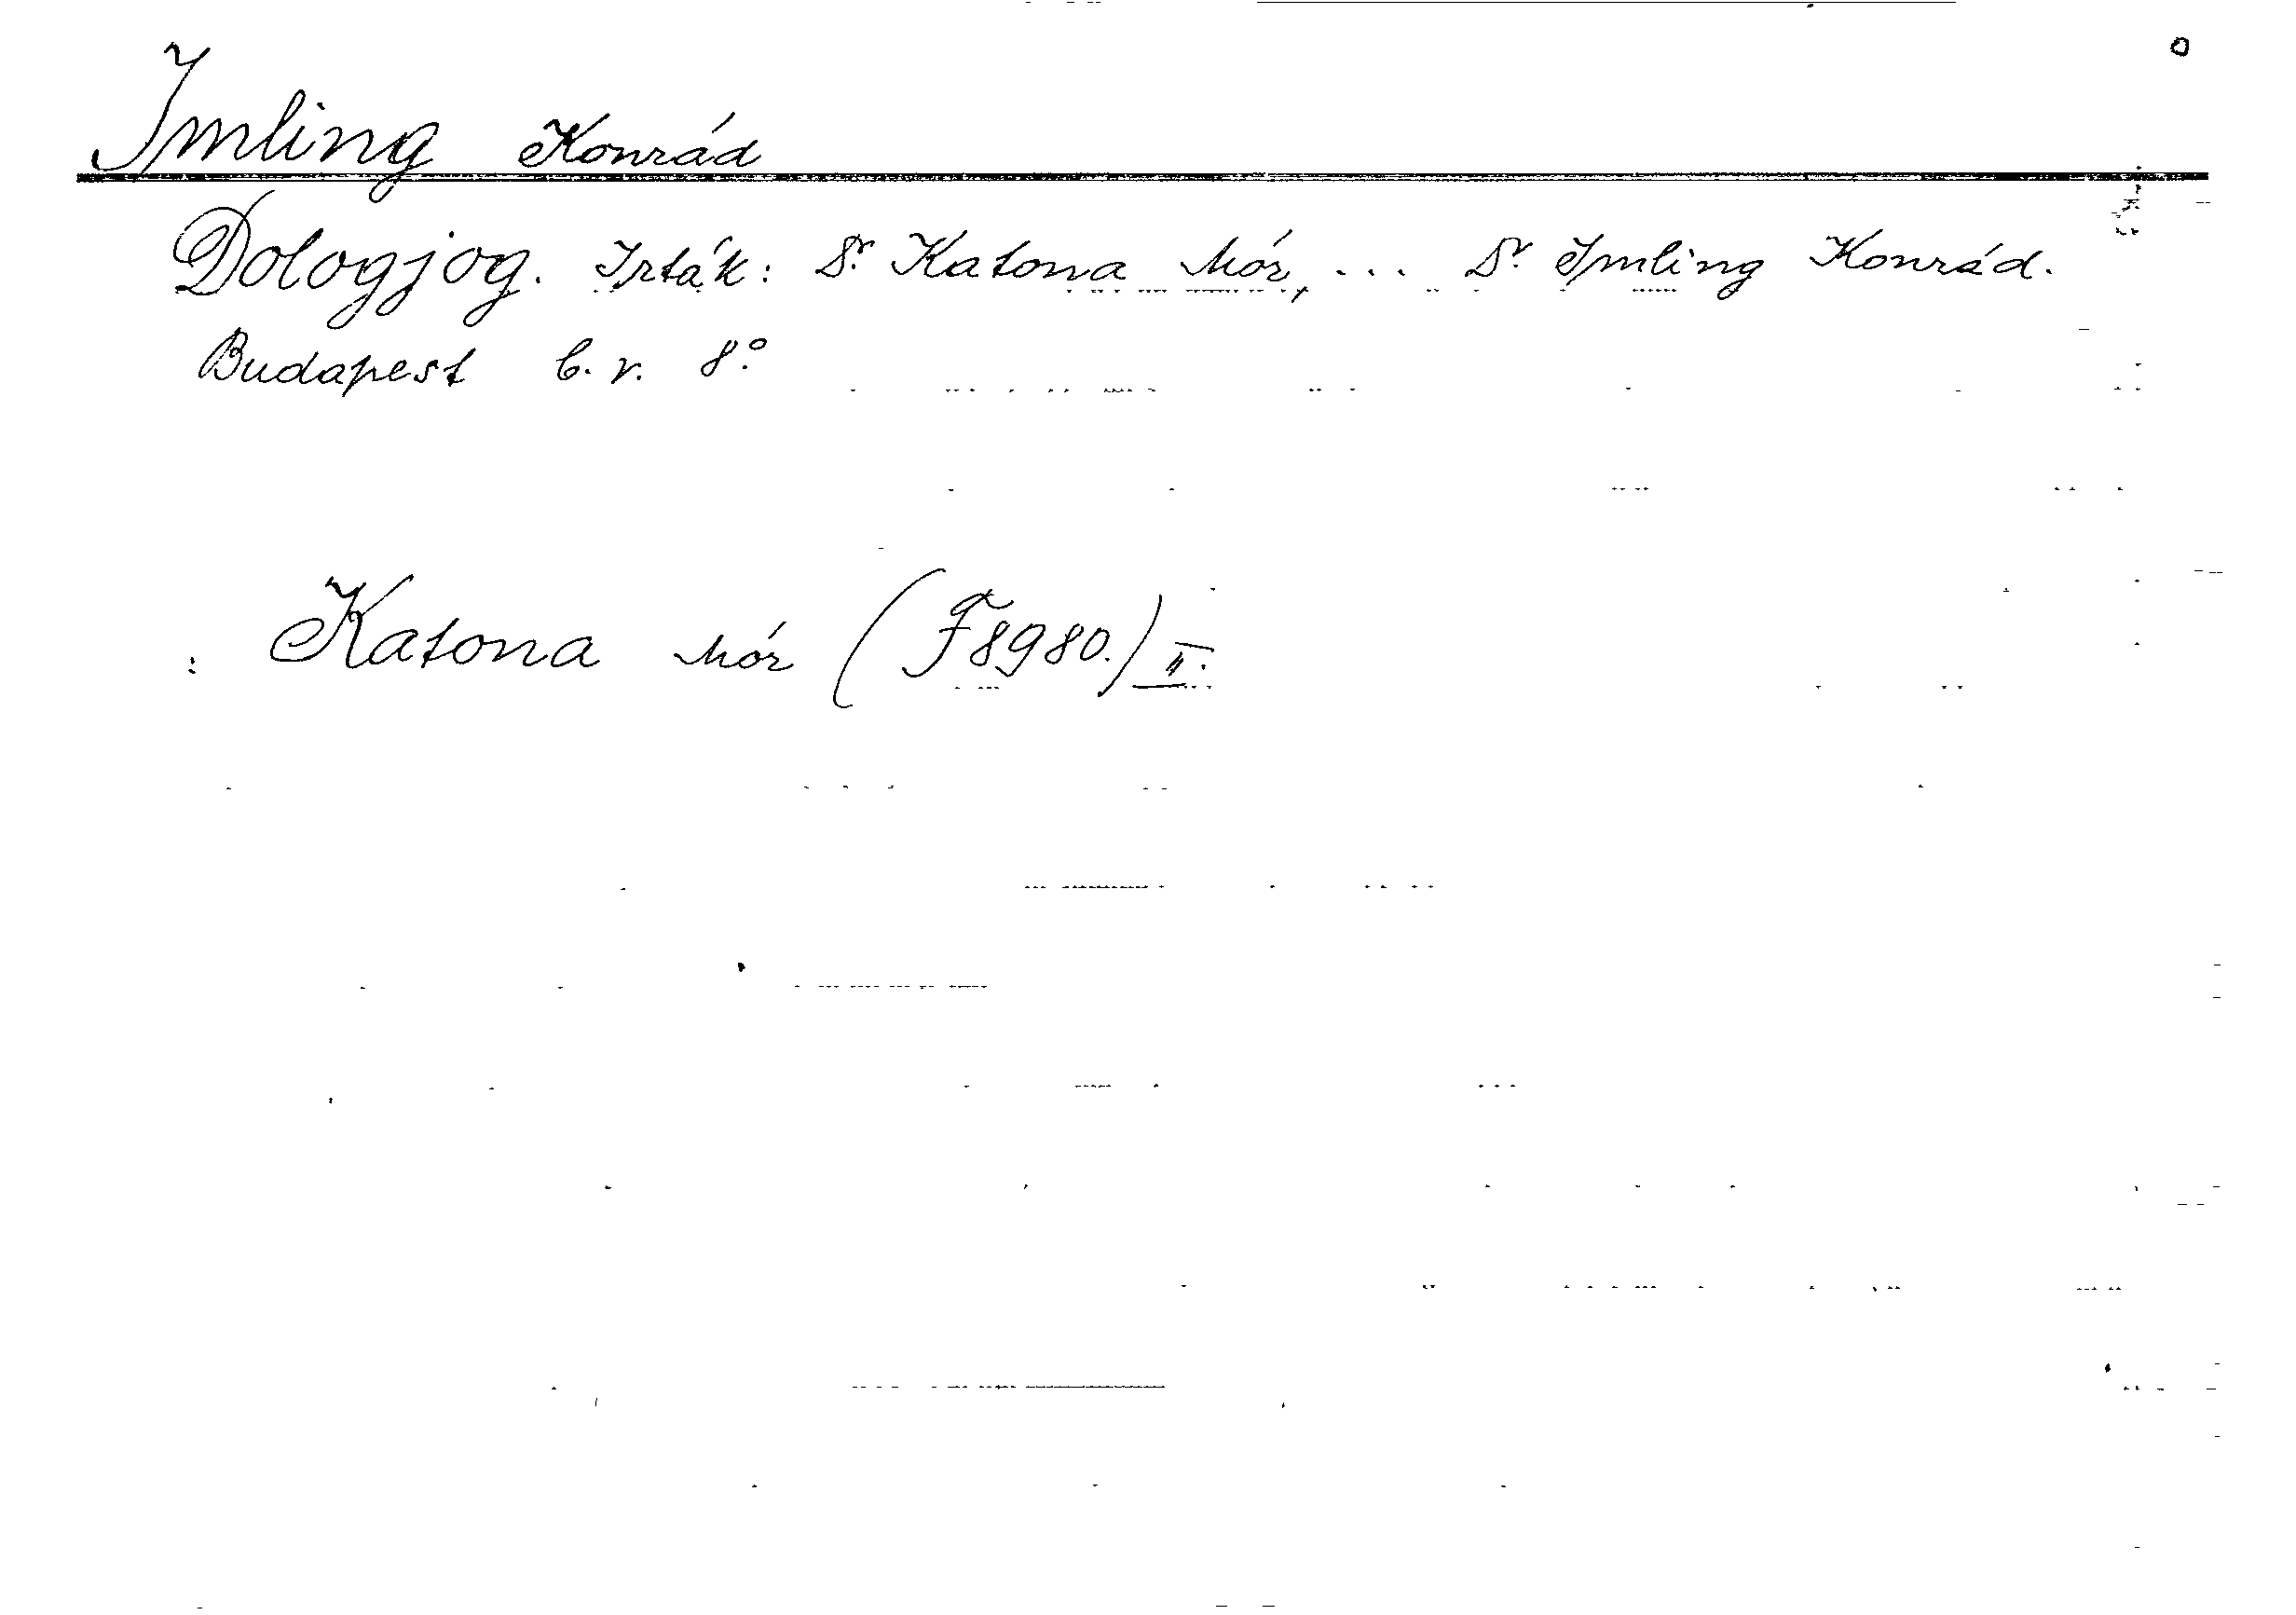 Imling Konrád
Dologjog. Irták: Dr. Katona Mór, ... Dr. Imling Konrád.
Budapest é. n. 8°.
: Katona Mór (F 8980.) II.